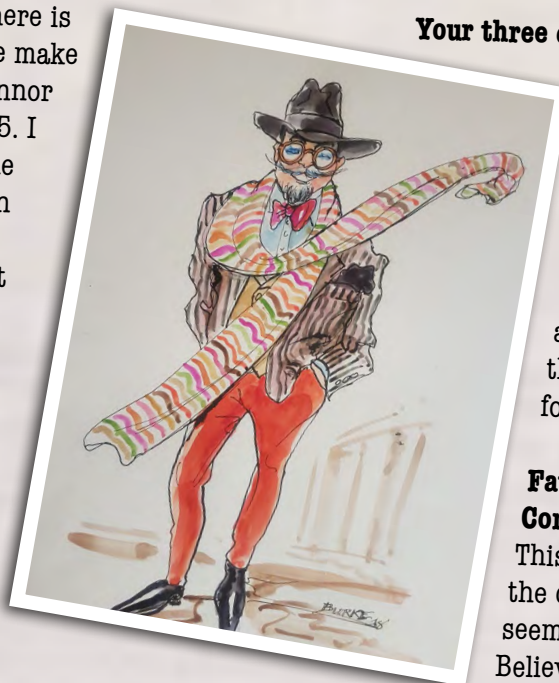 here is
e make
nnor
5. I
e
n
t
Your three
a
th
fo
Fa
Con
This
the
seem
Believ
BURKE